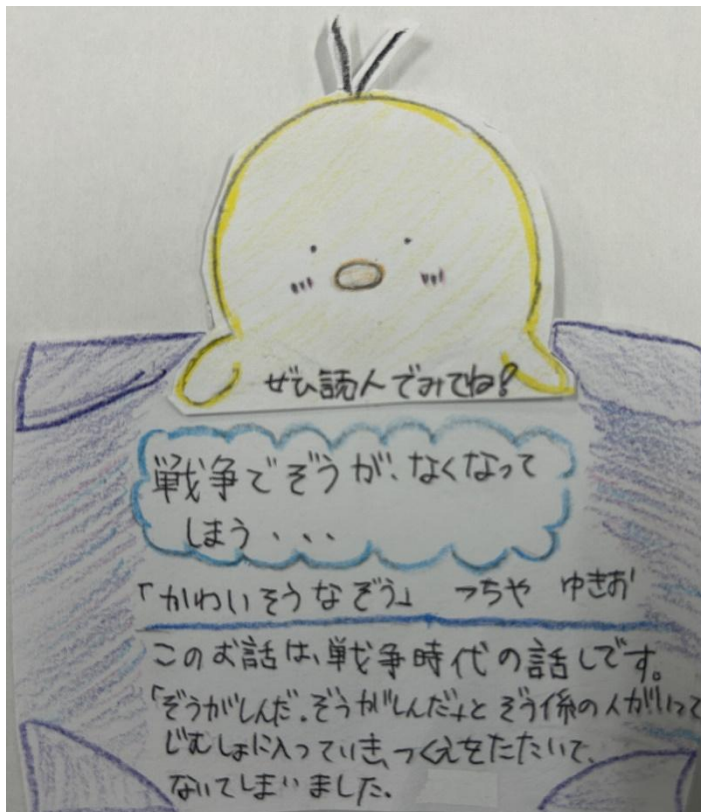 ぜひ読んでみてね?
戦争でぞうが、なくなって
しまう・・・
「かわいそうなぞう」 つちや ゆきお
このお話は、戦争時代の話しです。
「ぞうがしんだ。ぞうがしんだ」と ぞう係の人がいって
じむしょに入っていき、つくえをたたいて、
ないてしまいました。